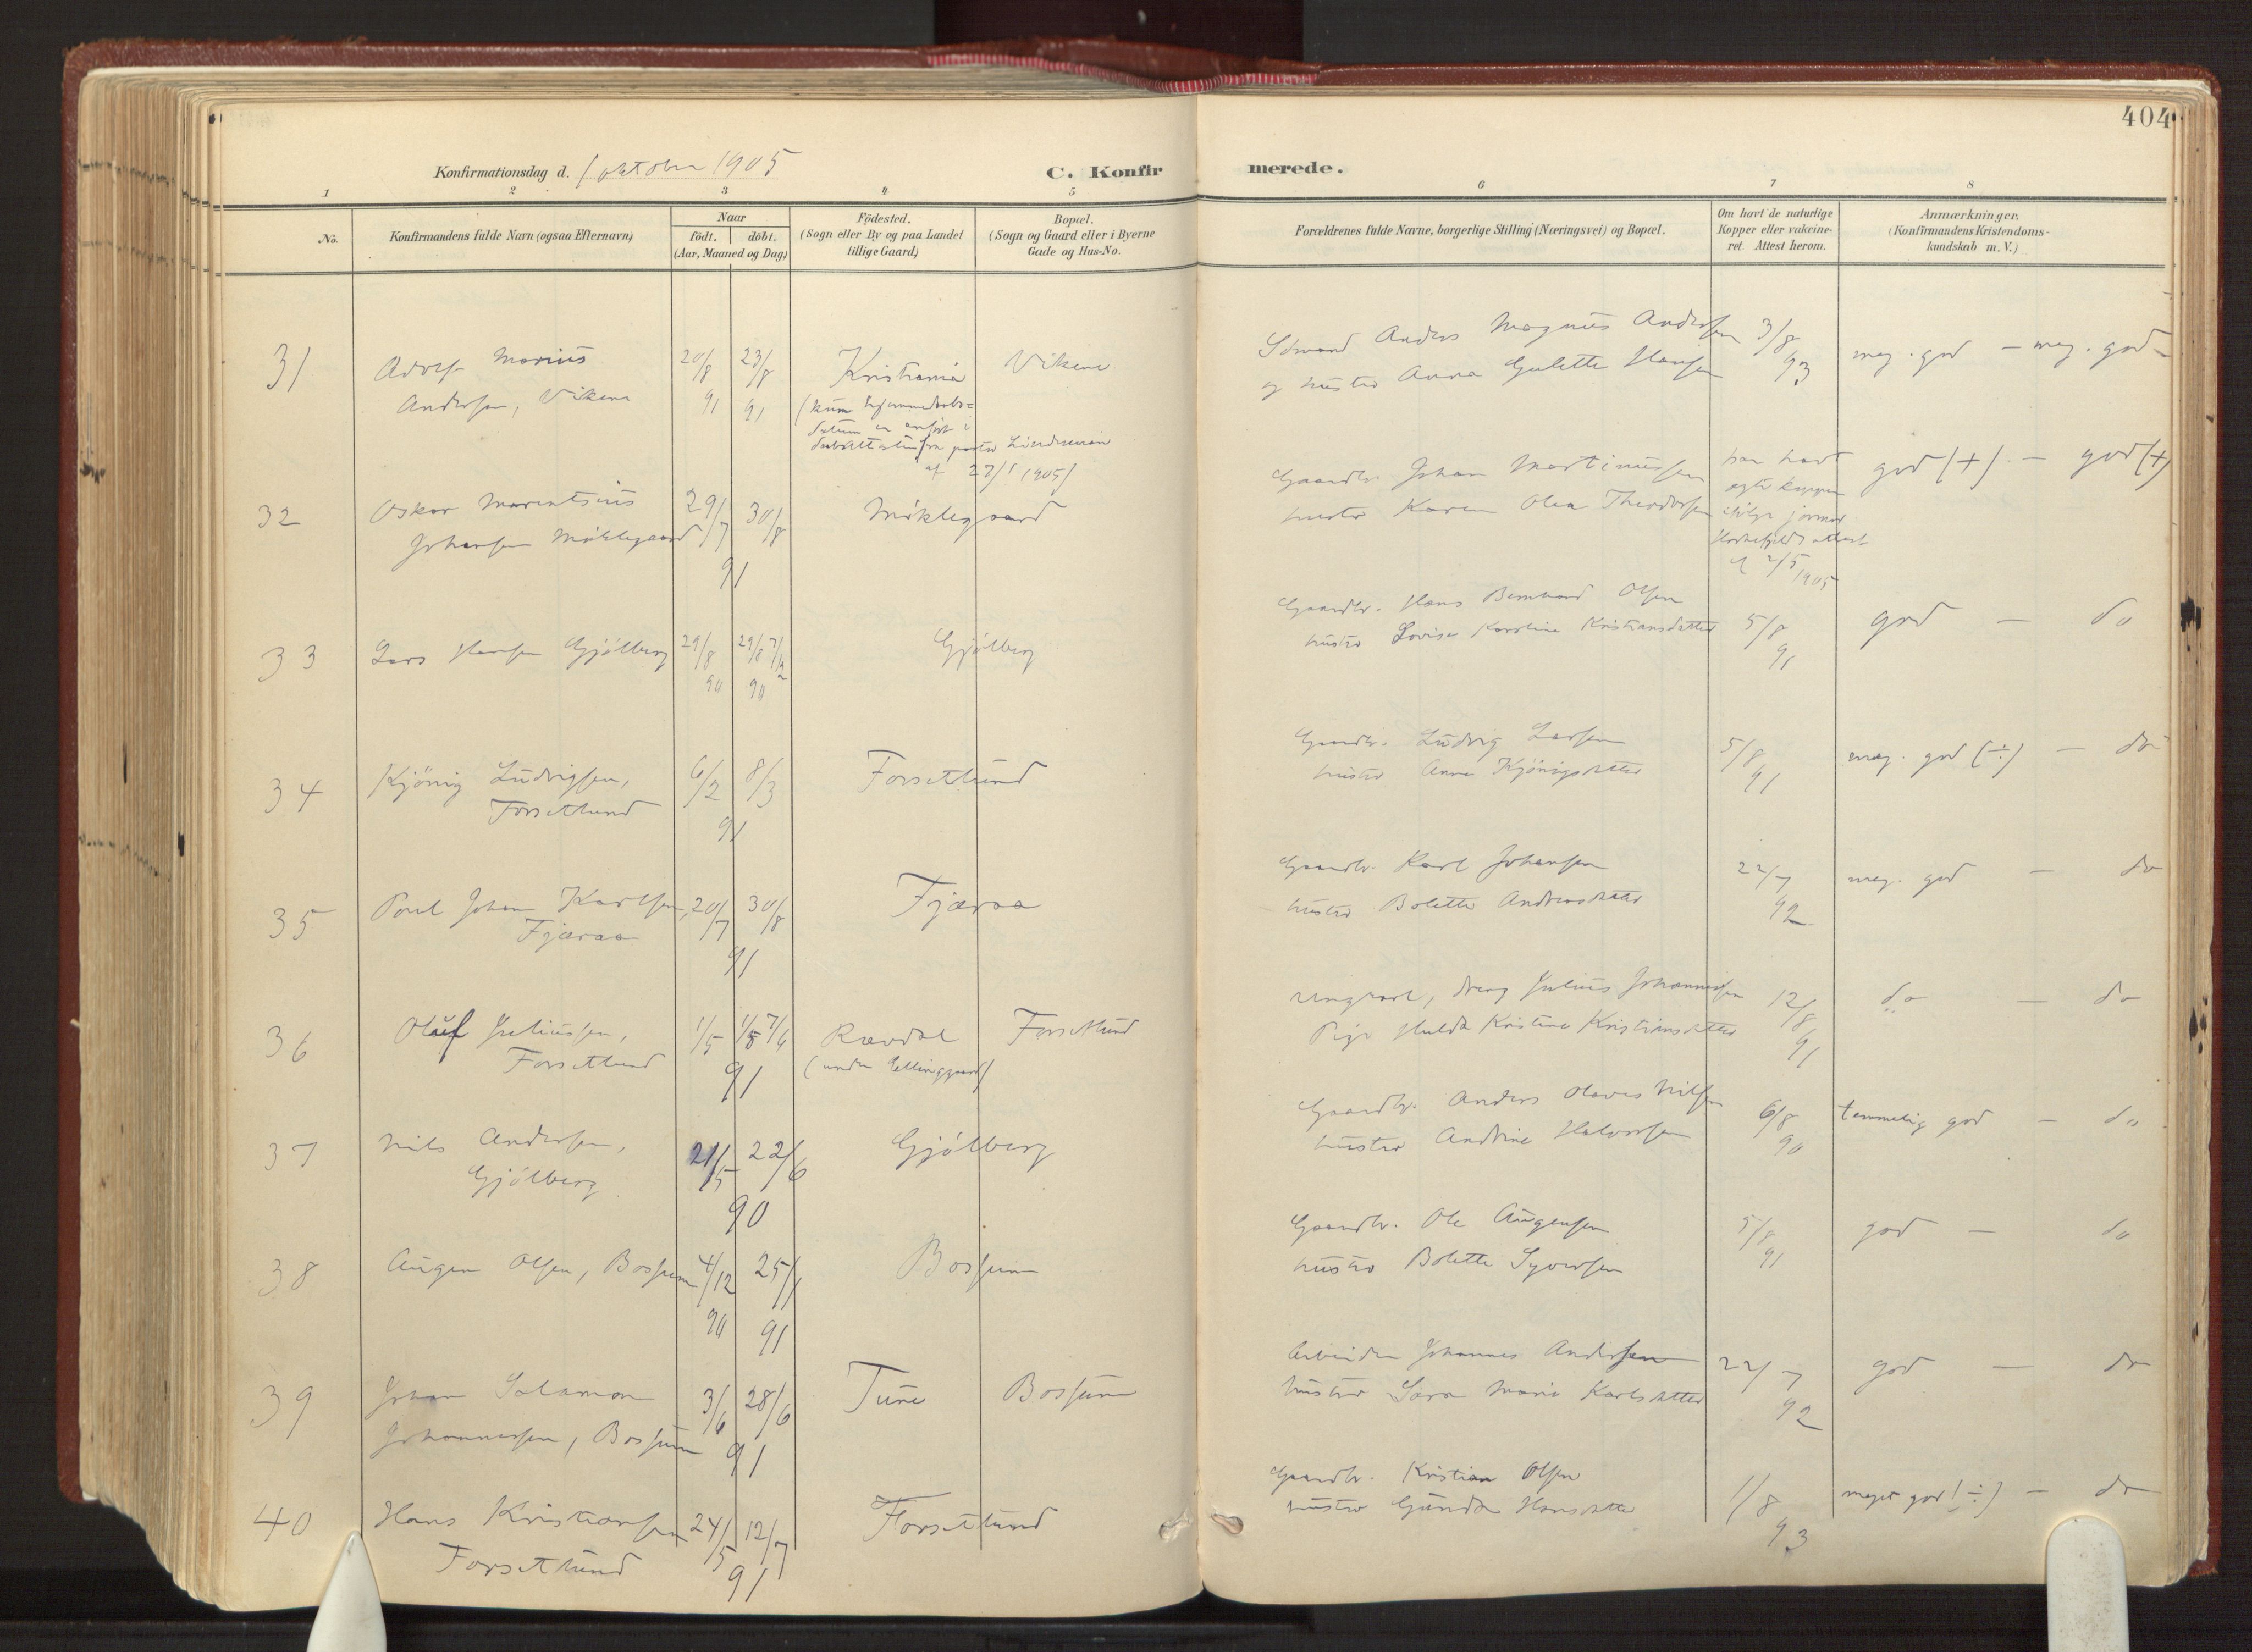 404
Konfirmationsdag d. 1 oktober 1905
C. Konfirmerede.
1 2 3 4 5 6 7 8
No.
Konfirmandens fulde Navn (ogsaa Efternavn)
Naar
födt. döbt.
(Aar, Maaned og Dag.)
Födested.
(Sogn eller By og paa Landet
tillige Gaard.)
Bopæl.
(Sogn og Gaard eller i Byerne
Gade og Hus-No.
Forældrenes fulde Navne, borgerlige Stilling (Næringsvei) og Bopæl.
Om havt de naturlige
Kopper eller vakcine-
ret. Attest herom.
Anmærkninger.
(Konfirmandens Kristendoms-
kundskab m. V.)
31 Adolf Marius 20/8 23/8 Kristiania Vikene
Andersen, Vikene 91 91 (kun hjemmedaabs-
datum er anført i
daabsattesten fra pastor Lindeman
af 27/1 1905)
Edward Anders Magnus Andersen 3/8
og hustru Anna Gulette Hansen 93 meg. god — meg. god
32 Oskar Marentsius 29/7 30/8 Møklegaard
Johansen Møklegaard 91
Gaardbr. Johan Martinussen har havt god (+) — god (+)
hustru Karen Olea Theodorsen ægte kopper
ifølge jormor
attest
af 2/5 1905
33 Lars Hansen Gjölberg 29/8 29/8 7/12 Gjölberg
90 90
Gaardbr. Hans Bernhard Olsen
hustru Lovise Karoline Kristiansdatter 5/8 god — do
91
34 Kjönig Ludvigsen, 6/2 8/3 Forsetlund
Forsetlund 91
Gaardbr. Ludvig Larsen 5/8 meg. god (÷) — do
hustru Anne Kjönigsdatter 91
35 Poul Johan Karlsen, 20/7 30/8 Fjæraa
Fjæraa 91
Gaardbr. Karl Johansen 22/7 meg. god — do
hustru Bolette Andreasdatter 92
36 Oluf Juliussen, 1/5 1/5 7/6 Rævdal Forsetlund
Forsetlund 91 (under Ellinggaard)
Ungkarl, dreng Julius Johannessen 12/8 do — do
Pige Hulda Kristine Kristiansdatter 91
37 Nils Andersen, 21/5 22/6 Gjölberg
Gjölberg 90
Gaardbr. Anders Olaves Nilsen 6/8 temmelig god — do
hustru Andrine Halvorsen 90
38 Augen Olsen, Bossum 4/12 25/1 Bossum
90 91
Gaardbr. Ole Augensen 5/8 god — do
hustru Bolette Syversen 91
39 Johan Salamon 3/6 28/6 Tune Bossum
Johannessen, Bossum 91
Arbeider Johannes Andersen 22/7 god — do
hustru Sara Marie Karlsdatter 92
40 Hans Kristiansen 24/5 12/7 Forsetlund
Forsetlund 91
Gaardbr. Kristian Olsen 1/8 meget god (÷) — do
hustru Gunda Hansdatter 93